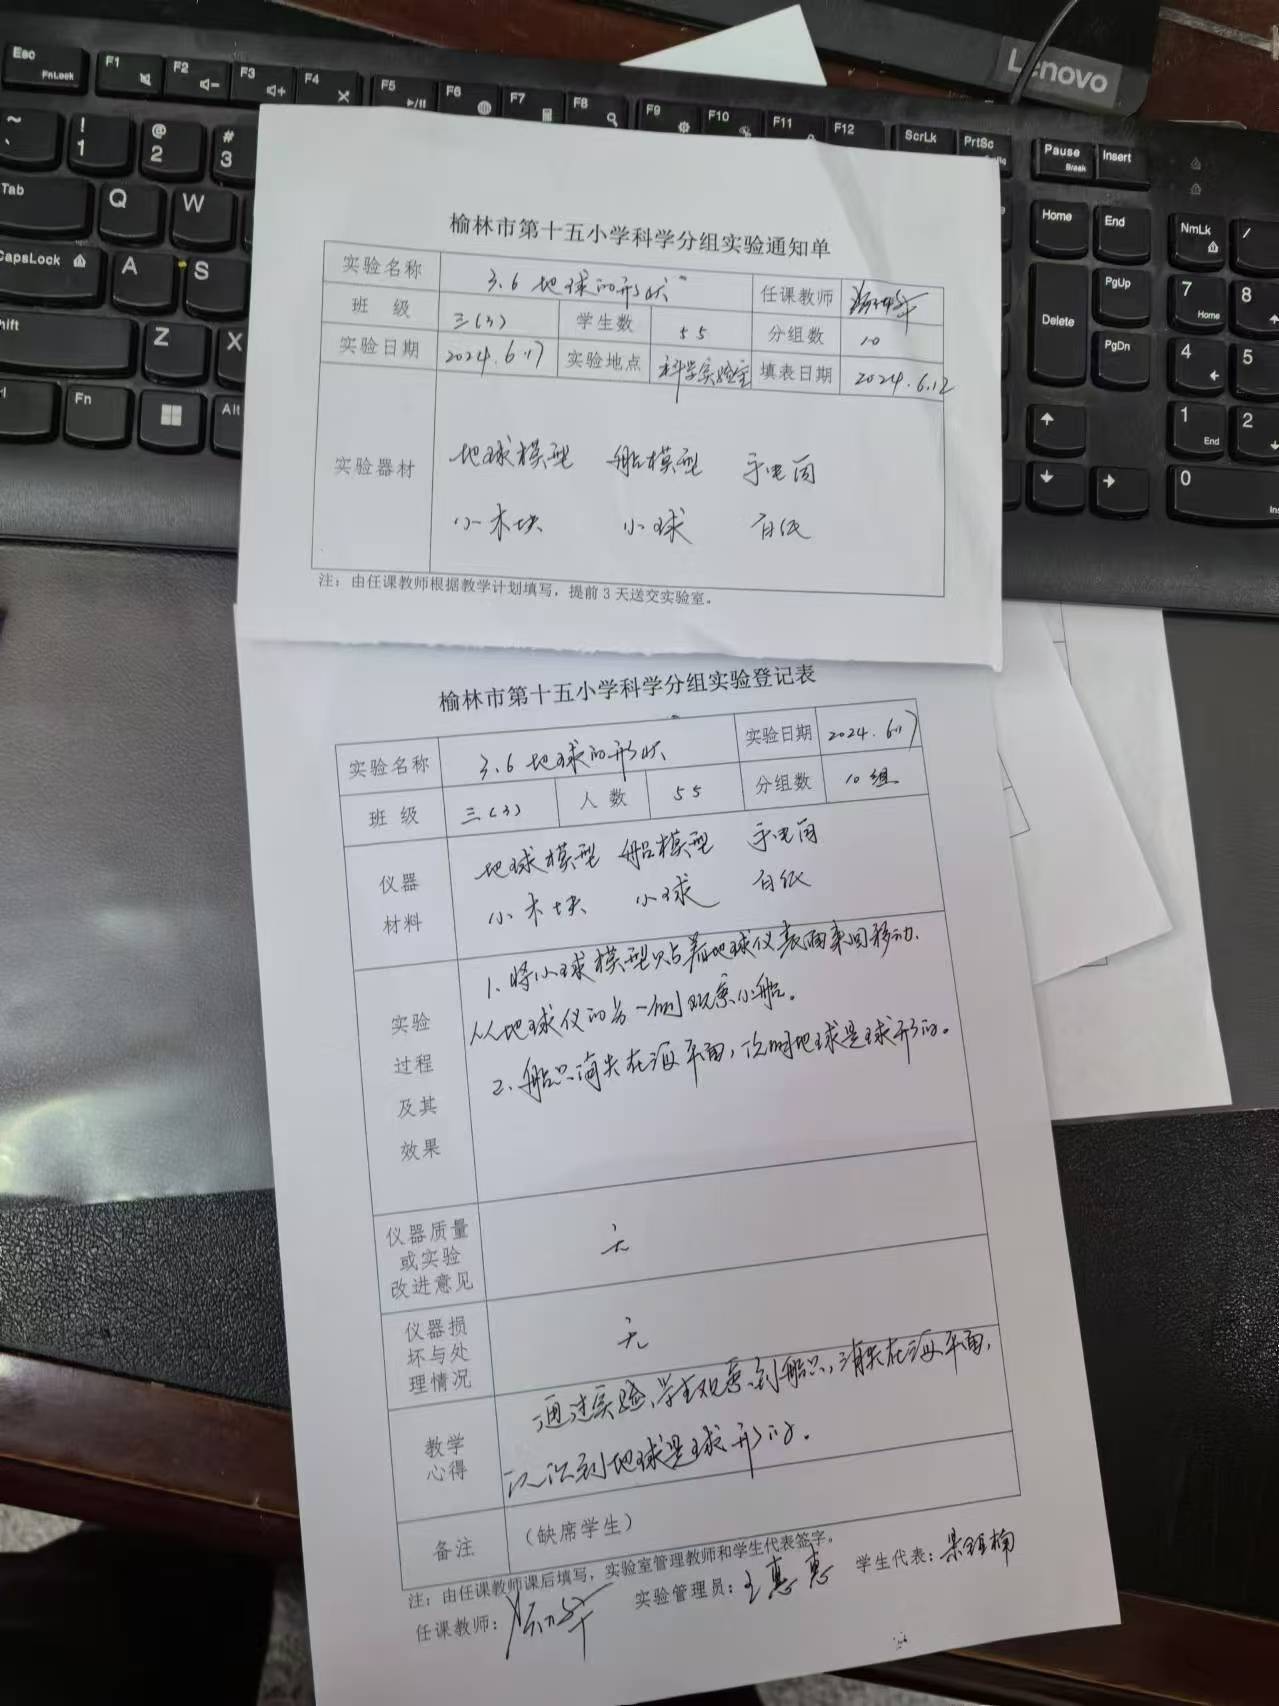 Lenovo
Esc
FnLock
F1
F2
F3
F4
F5
F6
F7
F8
F9
F10
F11
F12
ScrLk
PrtSc
Pause
Break
Insert
~
!
1
@
2
#
3
Home
End
NmLk
/
Tab
Q
W
PgUp
7
Home
8
CapsLock
A
S
Delete
Z
X
PgDn
4
5
Fn
Alt
1
End
2
0
榆林市第十五小学科学分组实验通知单
实验名称 3.6 地球的形状 任课教师
班 级 三(3) 学生数 55 分组数 10
实验日期 2024.6.17 实验地点 科学实验室 填表日期 2024.6.12
实验器材
地球模型 船模型 手电筒
小木块 小球 白纸
注：由任课教师根据教学计划填写，提前 3 天送交实验室。
榆林市第十五小学科学分组实验登记表
实验名称 3.6 地球的形状 实验日期 2024.6.17
班 级 三(3) 人 数 55 分组数 10组
仪器
材料
地球模型 船模型 手电筒
小木块 小球 白纸
实验
过程
及其
效果
1、将小球模型贴着地球仪表面来回移动.
从地球仪的另一侧观察小船。
2、船只消失在海平面，说明地球是球形的。
仪器质量
或实验
改进意见
无
仪器损
坏与处
理情况
无
教学
心得
通过实验、学生观察到船只，消失在海平面，
认识到地球是球形的。
备注 （缺席学生）
注：由任课教师课后填写，实验室管理教师和学生代表签字。
任课教师： 实验管理员：王惠惠 学生代表：